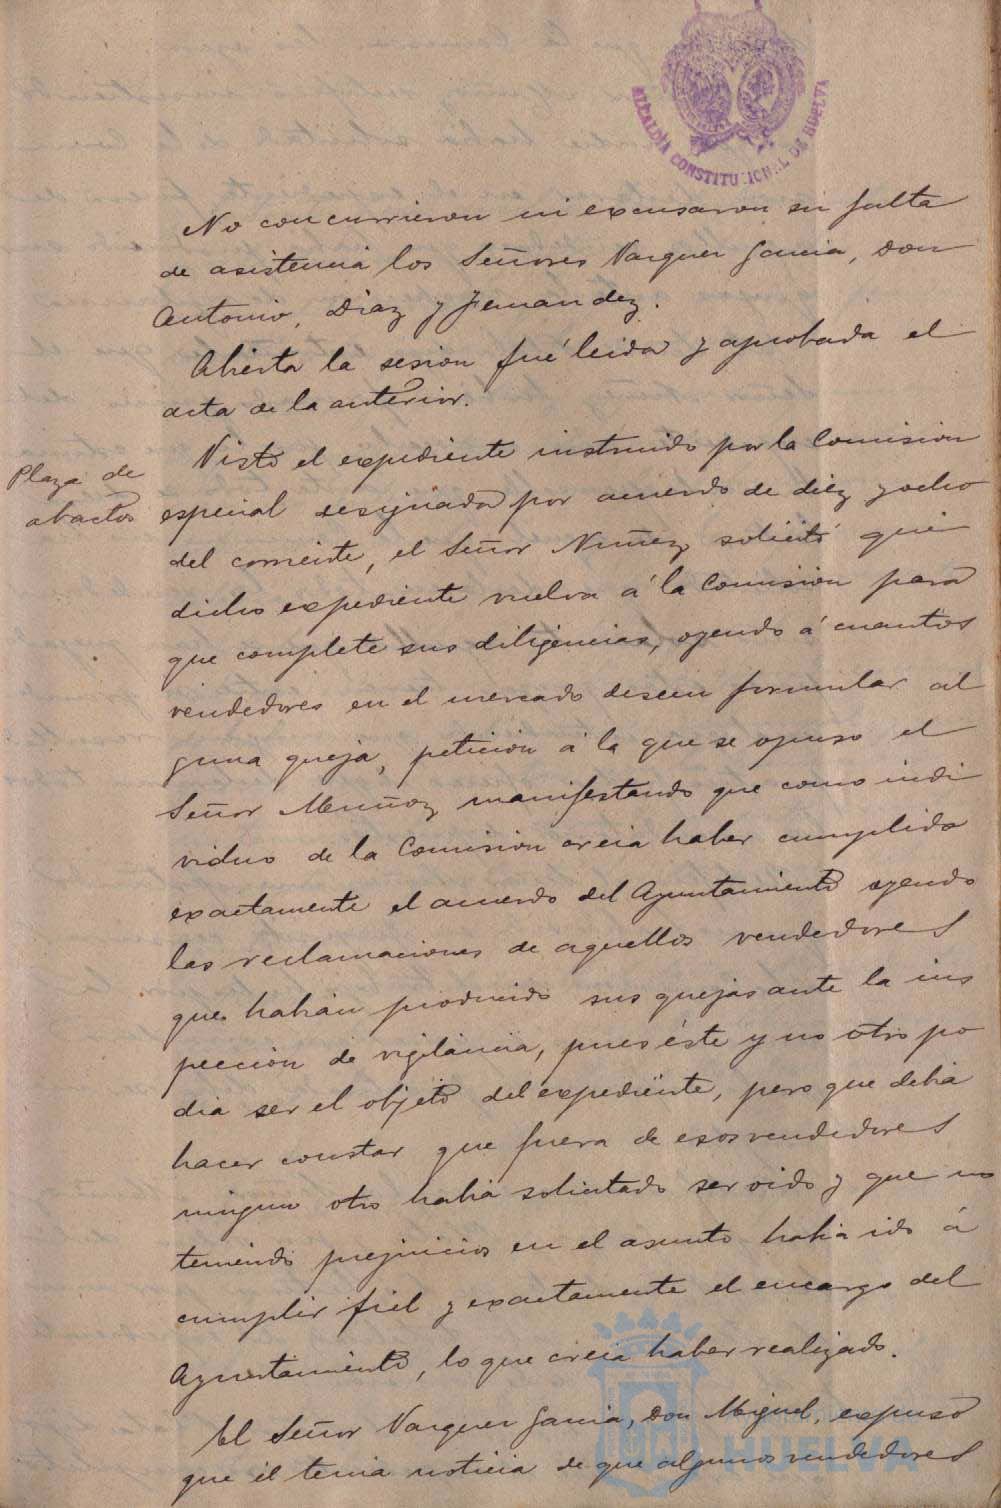 ALCALDÍA CONSTITUCIONAL DE HUELVA
No concurrieron ni excusaron su falta
de asistencia los Señores Vazquez Garcia, Don
Antonio, Diaz y Fernandez.
Abierta la sesion fué leida y aprobada el
acta de la anterior.
Plaza de
abastos
Visto el expediente instruido por la Comision
especial designada por acuerdo de diez y ocho
del corriente, el Señor Nuñez solicitó que
dicho expediente vuelva á la Comision para
que complete sus diligencias, oyendo á cuantos
vendedores en el mercado deseen formular al
guna queja, peticion á la que se opuso el
Señor Muñoz manifestando que como indi
viduo de la Comision creia haber cumplido
exactamente el acuerdo del Ayuntamiento oyendo
las reclamaciones de aquellos vendedores
que habian producido sus quejas ante la ins
peccion de vigilancia, pues éste y no otro po
dia ser el objeto del expediente, pero que debia
hacer constar que fuera de esos vendedores
ningun otro habia solicitado ser oido y que no
teniendo prejuicios en el asunto habia ido á
cumplir fiel y exactamente el encargo del
Ayuntamiento, lo que creia haber realizado.
El Señor Vazquez Garcia, Don Miguel, expuso
que él tenia noticia de que algunos vendedores
HUELVA